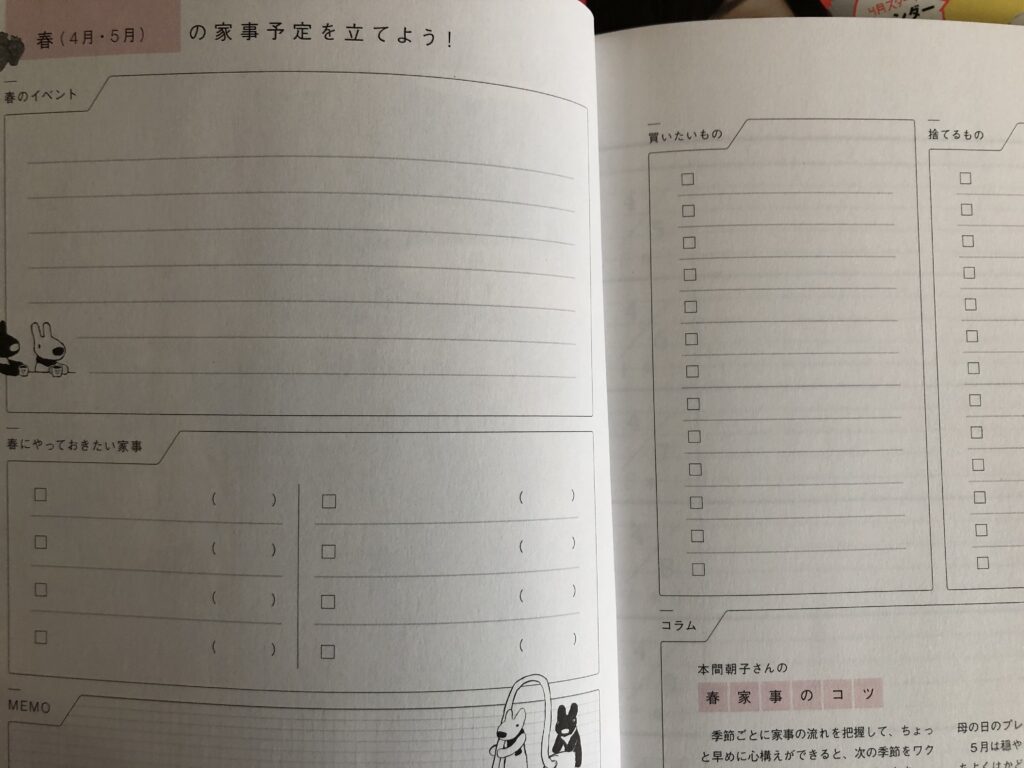 春(4月・5月) の家事予定を立てよう!
春のイベント
春にやっておきたい家事
( ) ( )
( ) ( )
( ) ( )
( ) ( )
MEMO
4月スタ
ンダー
買いたいもの
捨てるもの
コラム
本間朝子さんの
春家事のコツ
季節ごとに家事の流れを把握して、ちょっ
と早めに心構えができると、次の季節をワク
母の日のプレ
5月は穏や